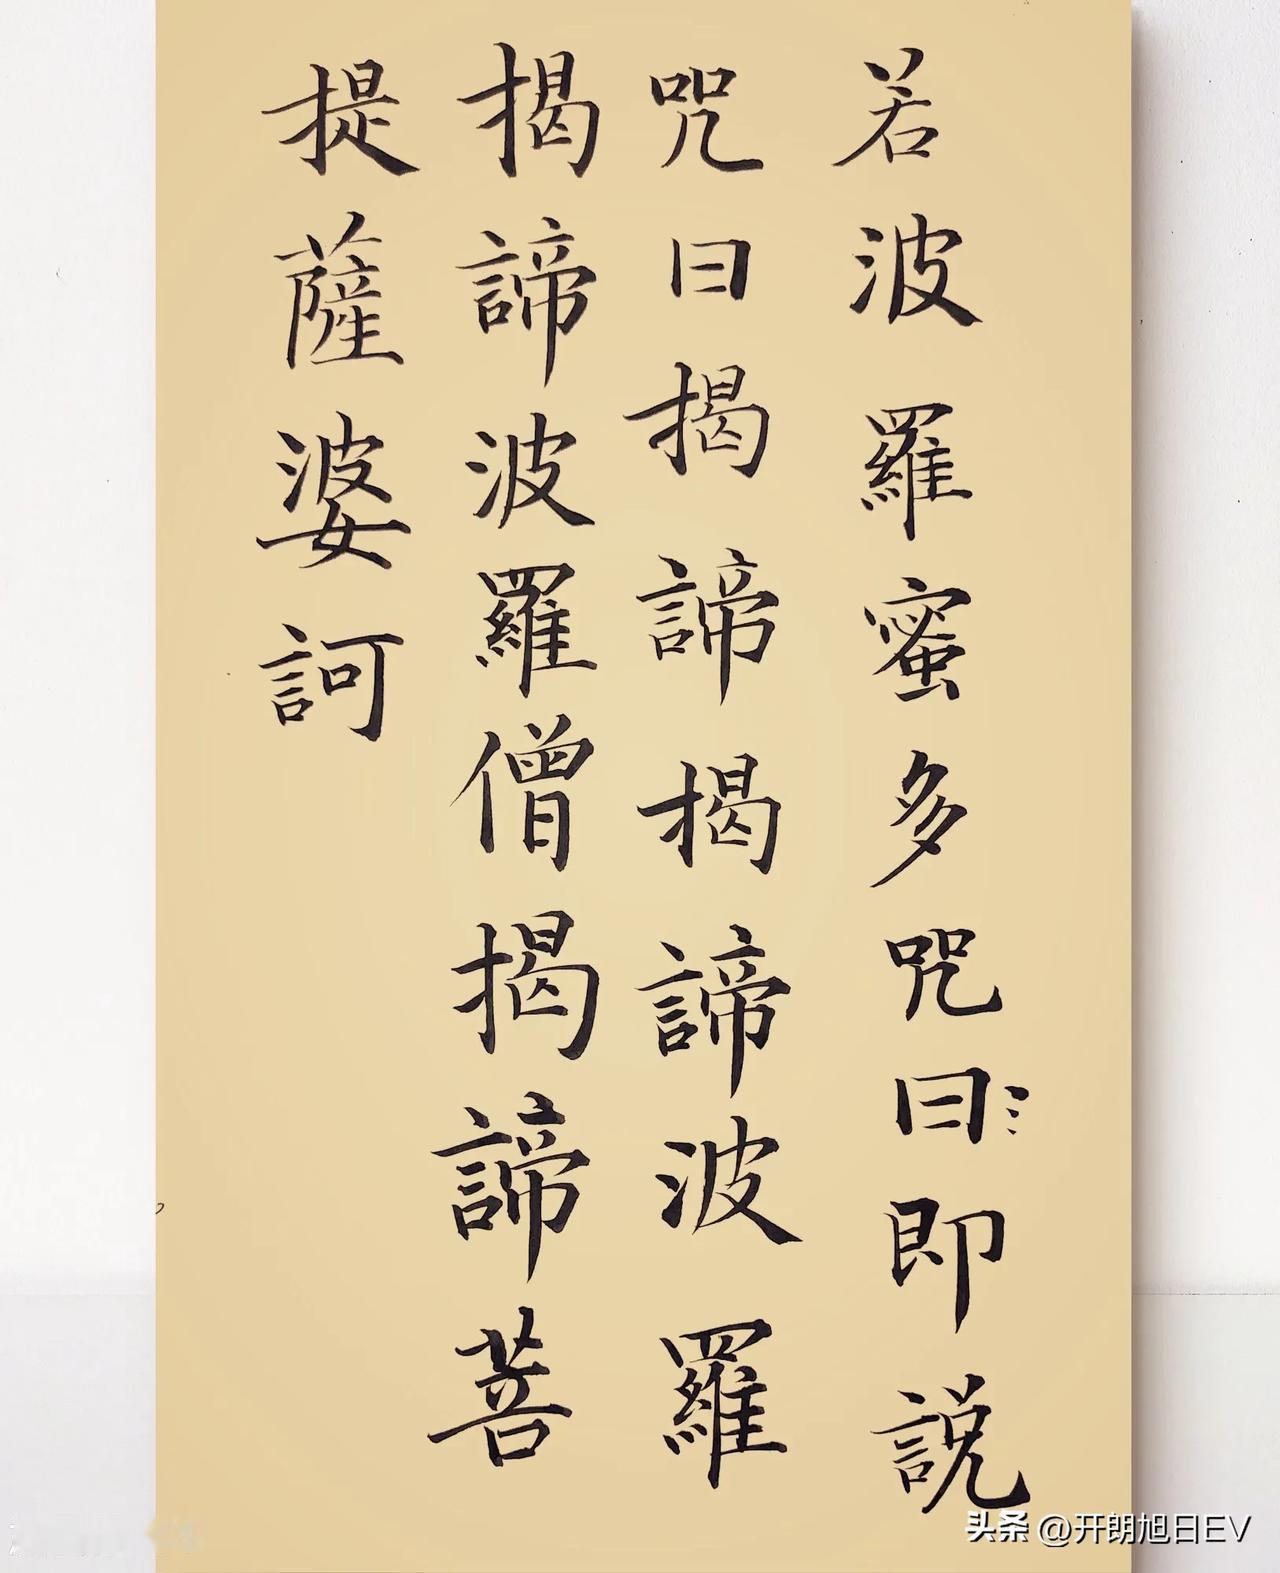 若波羅蜜多咒曰即説
咒曰揭諦揭諦波羅
揭諦波羅僧揭諦菩
提薩婆訶
头条 @开朗旭日EV